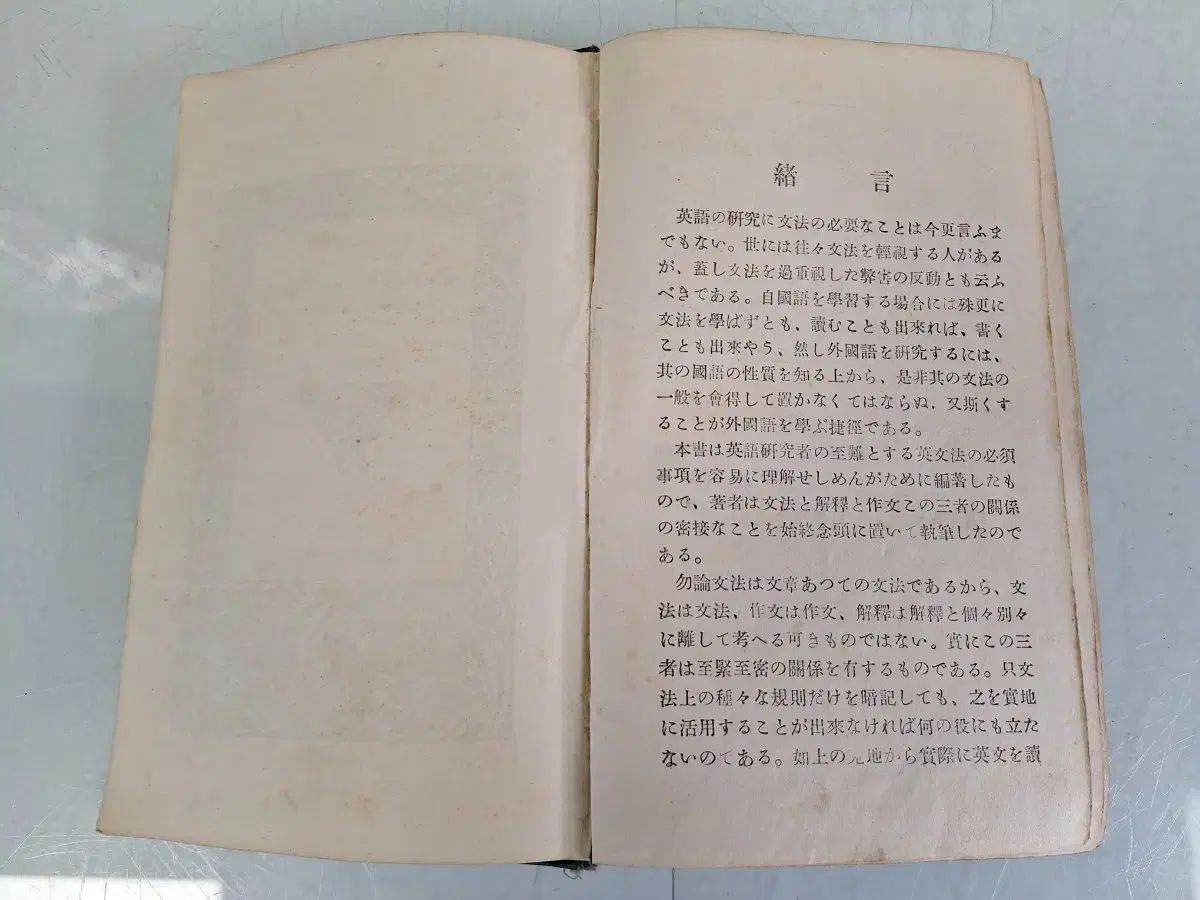 緒言
英語の硏究に文法の必要なことは今更言ふま
でもない。世には往々文法を輕視する人がある
が、蓋し文法を過重視した弊害の反動とも云ふ
べきである。自國語を學習する場合には殊更に
文法を學ばずとも、讀むことも出來れば、書く
ことも出來やう、然し外國語を硏究するには、
其の國語の性質を知る上から、是非其の文法の
一般を會得して置かなくてはならぬ．又斯くす
ることが外國語を學ぶ捷徑である。
本書は英語硏究者の至難とする英文法の必須
事項を容易に理解せしめんがために編著したも
ので、著者は文法と解釋と作文この三者の關係
の密接なことを始終念頭に置いて執筆したので
ある。
勿論文法は文章あつての文法であるから、文
法は文法、作文は作文、解釋は解釋と個々別々
に離して考へる可きものではない。實にこの三
者は至緊至密の關係を有するものである。只文
法上の種々な規則だけを暗記しても、之を實地
に活用することが出來なければ何の役にも立た
ないのである。如上の見地から實際に英文を讀